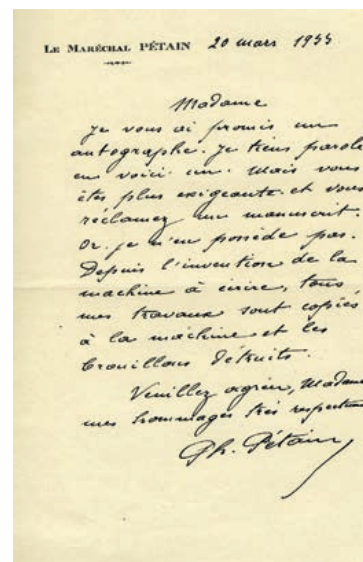 LE MARÉCHAL PÉTAIN 20 mars 1933
Madame
Je vous ai promis un
autographe. Je tiens parole
en voici un. Mais vous
êtes plus exigeante et vous
réclamez un manuscrit.
Or je n'en possède pas.
Depuis l'invention de la
machine à écrire, tous
mes travaux sont copiés
à la machine et les
brouillons détruits.
Veuillez agréer, Madame
mes hommages très respectueux
Ph. Pétain